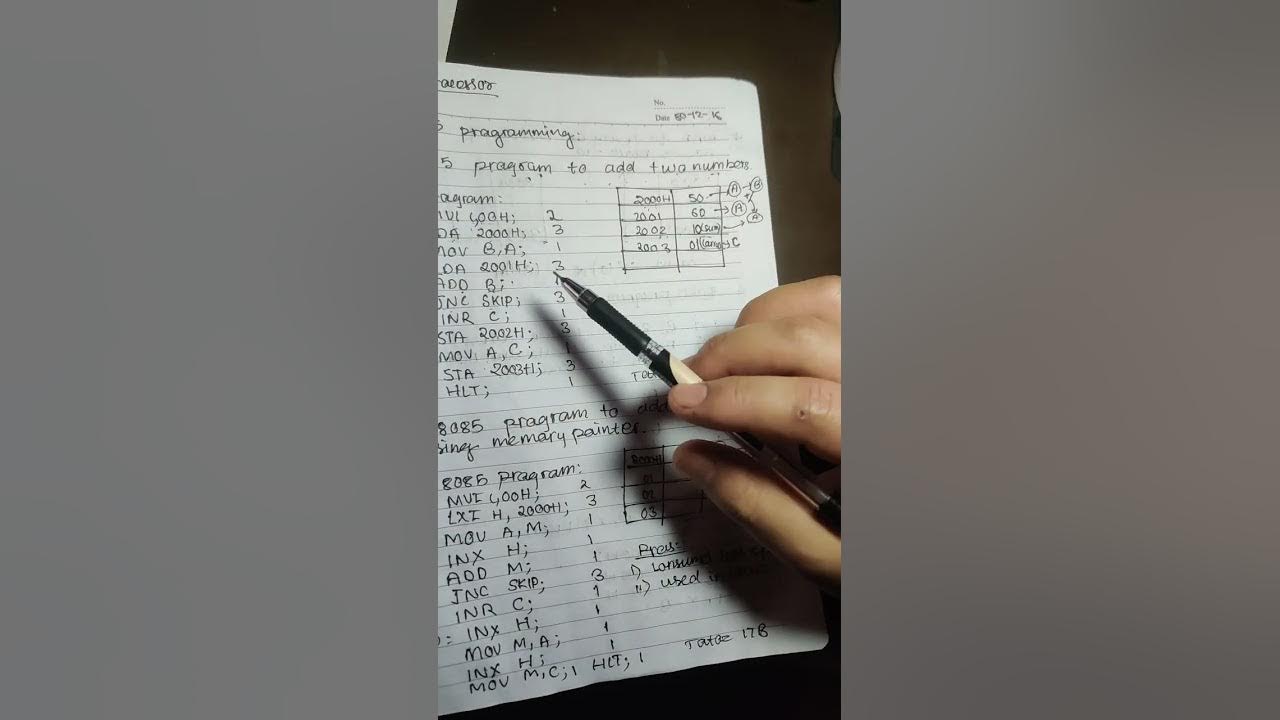 No.
Date 30-12-16
pragramming:
pragram to add twa numbers
MVI C,00H; 2
LDA 2000H; 3
MOV B,A; 1
LDA 2001H; 3
ADD B;
JNC SKIP; 3
INR C; 1
STA 2002H; 3
MOV A, C; 1
STA 2003H; 3
HLT; 1
2000H 50 A B
2001 60 A
2002 10(sum) A
2003 01(carry) C
8085 pragram to add
memary painter.
8085 pragram:
MVI C,00H; 2
LXI H, 2000H; 3
MOV A, M; 1
INX H; 1
ADD M; 1
JNC SKIP; 3
INR C; 1
: INX H; 1
MOV M, A; 1
INX H; 1
MOV M, C; 1 HLT; 1
01
02
03
Pros:
i) consumed
ii) used in
Total= 17B